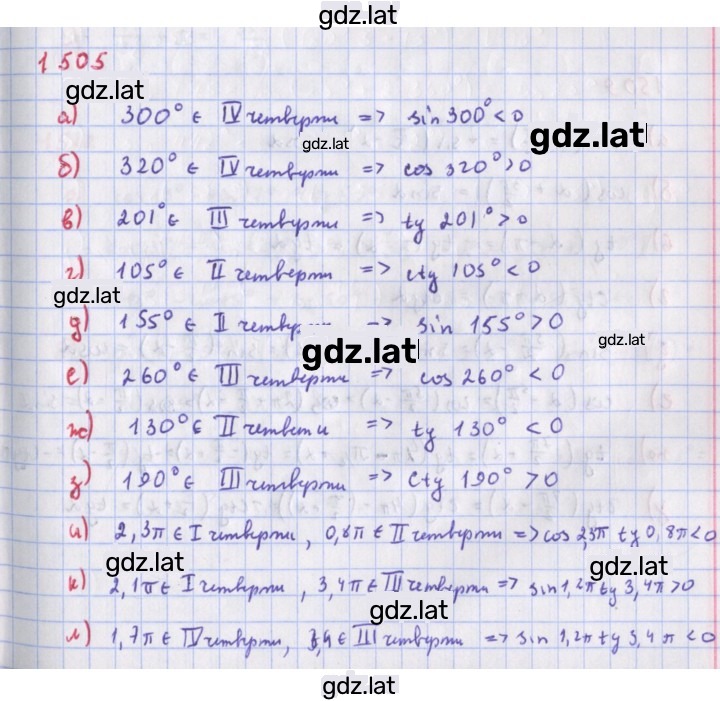 gdz.lat
1505
gdz.lat
а) 300° ∈ IV четверти => sin 300° < 0
gdz.lat
gdz.lat
б) 320° ∈ IV четверти => cos 320° > 0
в) 201° ∈ III четверти => tg 201° > 0
г) 105° ∈ II четверти => ctg 105° < 0
gdz.lat
д) 155° ∈ II четверти => sin 155° > 0
gdz.lat
gdz.lat
е) 260° ∈ III четверти => cos 260° < 0
ж) 130° ∈ II четвети => tg 130° < 0
з) 190° ∈ III четверти => ctg 190° > 0
и) 2,3π ∈ I четверти, 0,8π ∈ II четверти => cos 2,3π tg 0,8π < 0
gdz.lat
gdz.lat
к) 2,1π ∈ I четверти, 3,4π ∈ III четверти => sin 1,2π tg 3,4π > 0
gdz.lat
л) 1,7π ∈ IV четверти, 3,4 ∈ III четверти => sin 1,2π tg 3,4π < 0
gdz.lat